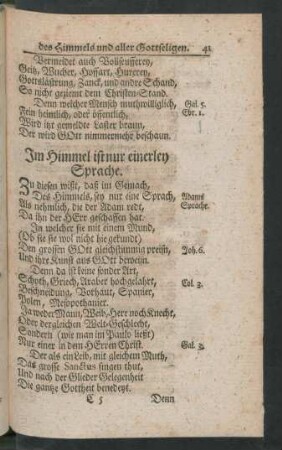 des Himmels und aller Gottseligen. 41
Vermeidet auch Vollseufferey,
Geitz, Wucher, Hoffart, Hurerey,
Gottslästrung, Zanck, und andre Schand,
So nicht geziemt dem Christen-Stand.
Denn welcher Mensch muthwilliglich, Gal. 5.
Fein heimlich, oder öffentlich, Ebr. 1.
Wird ihr gemeldte Laster braun,
Der wird GOtt nimmermehr beschaun.
Im Himmel ist nur einerley
Sprache.
Zu diesen wißt, daß im Gemach,
Des Himmels, sey nur eine Sprach, Adams
Als nehmlich, die der Adam redt, Sprache.
Da ihn der HErr geschaffen hat.
In welcher sie mit einem Mund,
(Ob sie sie wol nicht hie gekundt)
Den grossen GOtt gleichstimmig preisen, Joh. 6.
Und ihre Kunst aus GOtt beweisen.
Denn da ist keine sonder Art,
Schyth, Griech, Araber hochgelahrt, Col. 3.
Beschneidung, Vorhaut, Spanier,
Polen, Mesopothanier.
Ja weder Mann, Weib, Herr noch Knecht,
Oder dergleichen Welt-Geschlecht,
Sondern (wie man im Paulo ließt)
Nur einer in dem HErren Christ. Gal. 3.
Der als ein Leib, mit gleichem Muth,
Das grosse Sanctus singen thut,
Und nach der Glieder Gelegenheit
Die gantze Gottheit benedeyt.
C 5 Denn